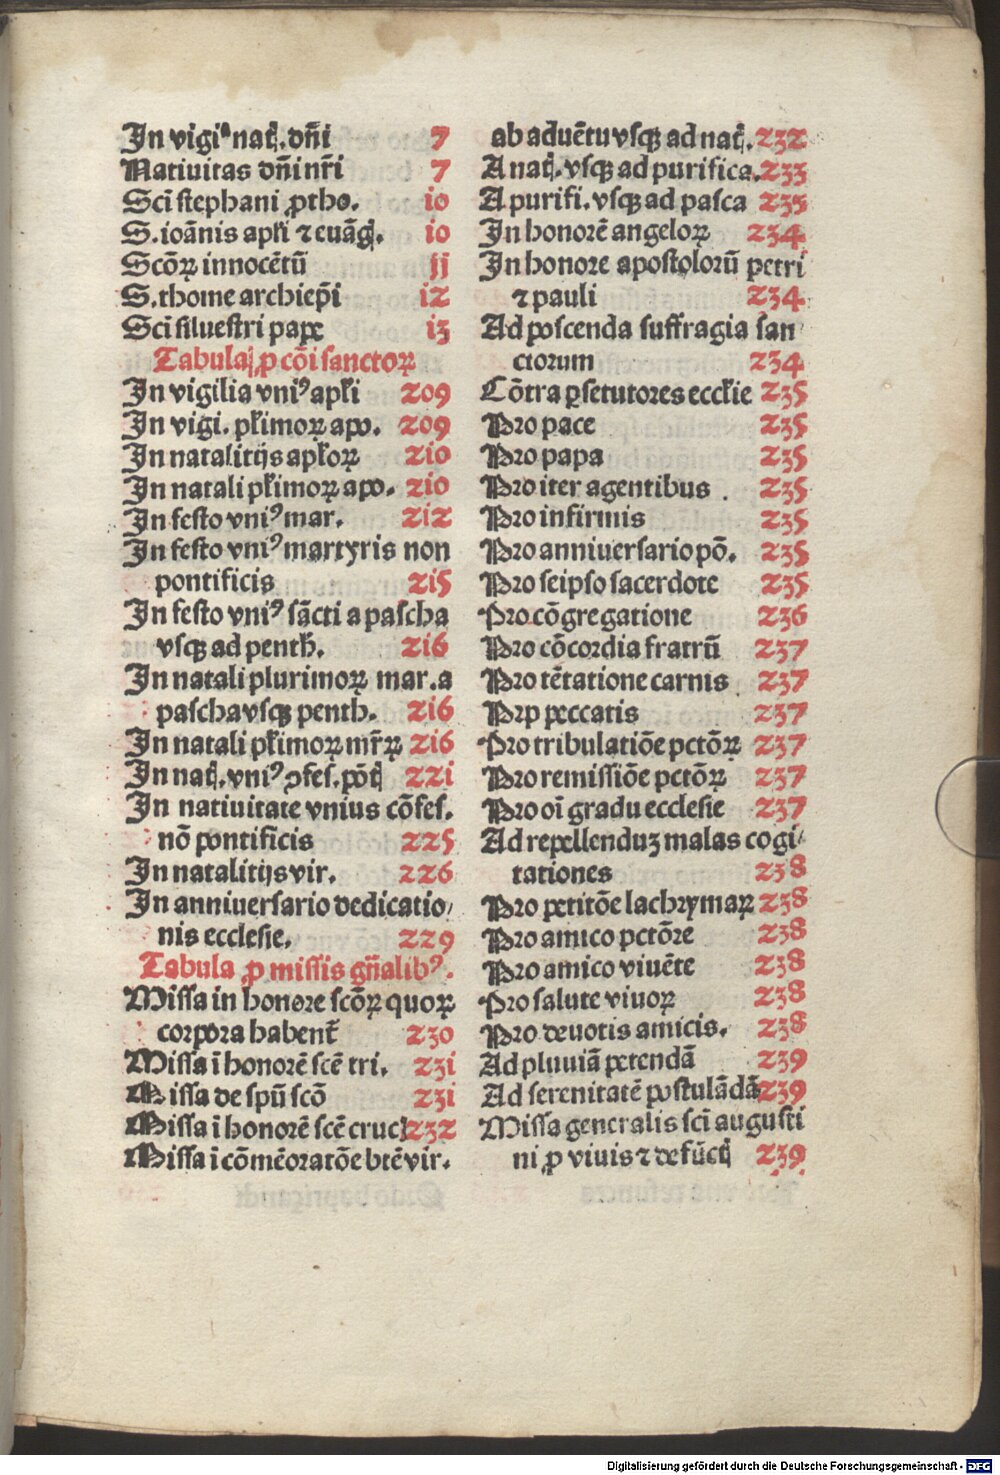 In vigiᵃ natꝭ. dn̄i 7
Natiuitas dn̄i nr̄i 7
Scī stephani ꝓtho. io
S. ioānis apl̄i ⁊ euāgꝭ. io
Scōꝝ innocētū jj
S. thome archiep̄i i2
Scī siluestri pape i3
Tabula ꝓ cōi sanctoꝝ
In vigilia vniꝰ apl̄i 209
In vigi. pl̄imoꝝ apo. 209
In natalitijs apl̄oꝝ 2io
In natali pl̄imoꝝ apo. 2io
In festo vniꝰ mar. 2i2
In festo vniꝰ martyris non
pontificis 2i5
In festo vniꝰ sācti a pascha
vsqꝫ ad penth̄. 2i6
In natali plurimoꝝ mar. a
pascha vsqꝫ penth. 2i6
In natali pl̄imoꝝ mr̄ꝝ 2i6
In natꝭ. vniꝰ ꝯfes. pōtꝭ 22i
In natiuitate vnius cōfes.
nō pontificis 225
In natalitijs vir. 226
In anniuersario dedicatio/
nis ecclesie. 229
Tabula ꝓ missis gn̄alibꝰ.
Missa in honore scōꝝ quoꝝ
corpora habent̄ 230
Missa ī honorē scē tri. 23i
Missa de spū scō 23i
Missa ī honorē scē crucꝭ 232
Missa ī cōmēoratōe btē vir.
ab aduētu vsqꝫ ad natꝭ. 232
A natꝭ. vsqꝫ ad purifica. 233
A purifi. vsqꝫ ad pasca 235
In honorē angeloꝝ 234
In honore apostolorū petri
⁊ pauli 234
Ad poscenda suffragia san
ctorum 234
Cōtra ꝑsetutores eccl̄ie 235
Pro pace 235
Pro papa 235
Pro iter agentibus 235
Pro infirmis 235
Pro anniuersario pō. 235
Pro seipso sacerdote 235
Pro cōgregatione 236
Pro cōcordia fratrū 237
Pro tētatione carnis 237
Prp peccatis 237
Pro tribulatiōe pctōꝝ 237
Pro remissiōe pctōꝝ 237
Pro oī gradu ecclesie 237
Ad repellenduꝫ malas cogi/
tationes 238
Pro petitōe lachrymaꝝ 238
Pro amico pctōre 238
Pro amico viuēte 238
Pro salute viuoꝝ 238
Pro deuotis amicis. 238
Ad pluuiā petendā 239
Ad serenitatē postulādā 239
Missa generalis scī augusti
ni ꝓ viuis ⁊ defūctꝭ 239
Digitalisierung gefördert durch die Deutsche Forschungsgemeinschaft - DFG